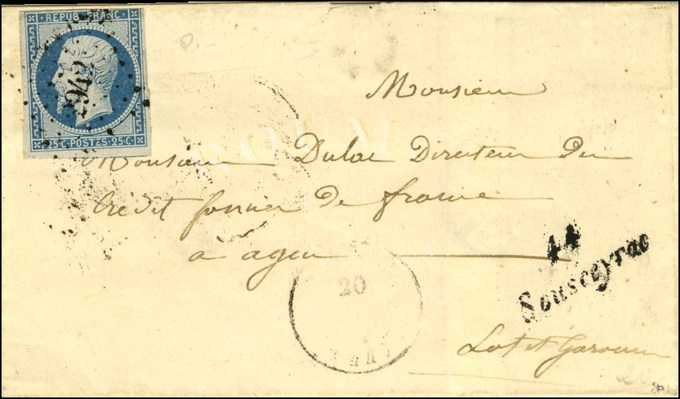 REPUB. FRANC.
2942
25 C. POSTES 25 C.
Monsieur
Monsieur Dulac Directeur du
Crédit foncier de france
à agen
44
Sousceyrac
20
Lot et Garonne